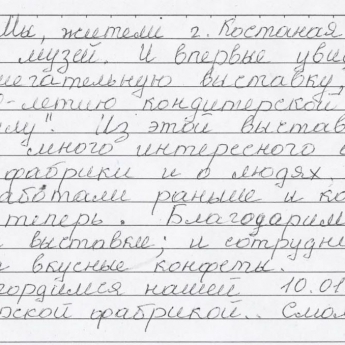 Мы, жители г. Костаная
музей. И впервые увид
мегательную выставку,
-летию кондитерской
ему". Из этой выстав
много интересного о
фабрики и о людях,
аботали раньше и ко
теперь. Благодарим
выставке; и сотрудни
вкусные конфеты.
гордимся нашей 10.01
рской фабрикой.. Смол